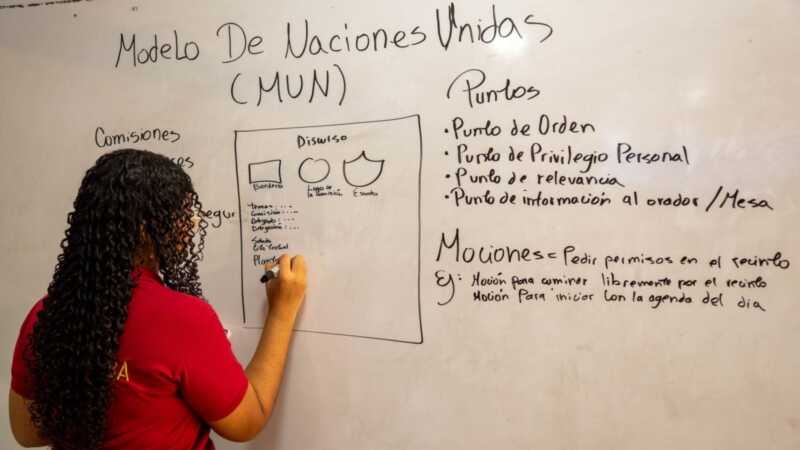 Modelo De Naciones Unidas
(MUN)
Comisiones
Discurso
Bandera
Logo de
la comisión
Escudo
Tema: ....
Comisión: ...
Delegado: ...
Delegación: ...
Saludo
Cita Textual
Puntos
• Punto de Orden
• Punto de Privilegio Personal
• Punto de relevancia
• Punto de información al orador / Mesa
Mociones = Pedir permisos en el recinto
Ej: Moción para caminar libremente por el recinto
Moción Para iniciar con la agenda del dia